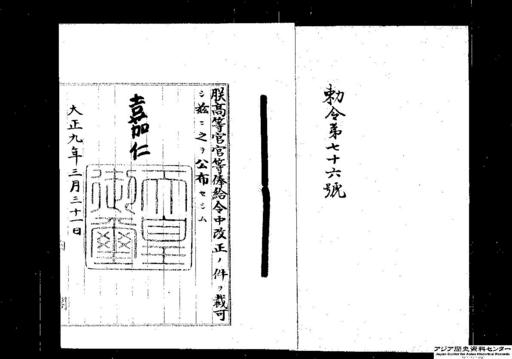 勅令第七十六號
朕高等官官等俸給令中改正ノ件ヲ裁可
シ茲ニ之ヲ公布セシム
嘉仁
天皇
御璽
大正九年三月三十一日
アジア歴史資料センター
Japan Center for Asian Historical Records